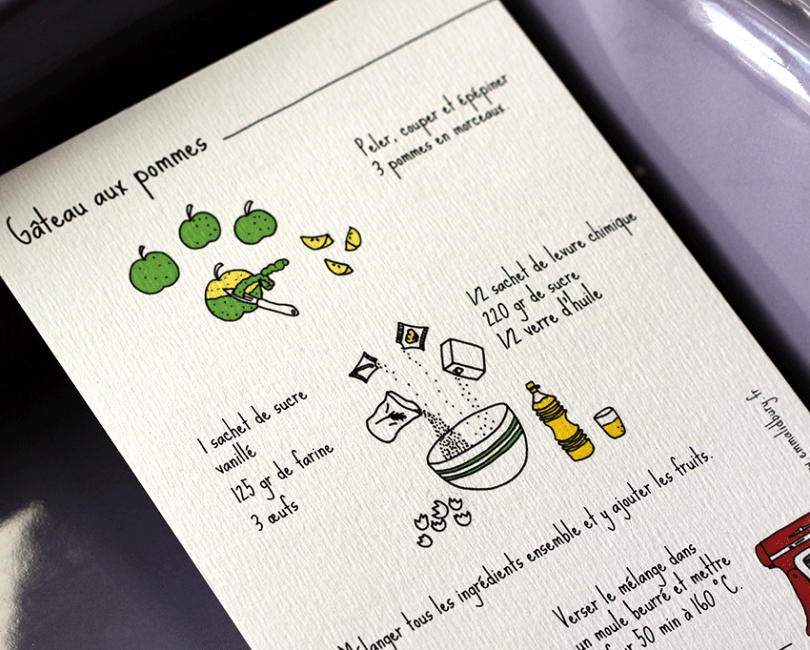 Gâteau aux pommes
Peler, couper et épépiner
3 pommes en morceaux.
1/2 sachet de levure chimique
220 gr de sucre
1/2 verre d'huile
1 sachet de sucre
vanillé
125 gr de farine
3 œufs
Mélanger tous les ingrédients ensemble et y ajouter les fruits.
Verser le mélange dans
un moule beurré et mettre
50 min à 160°C.
emmalidbury.fr